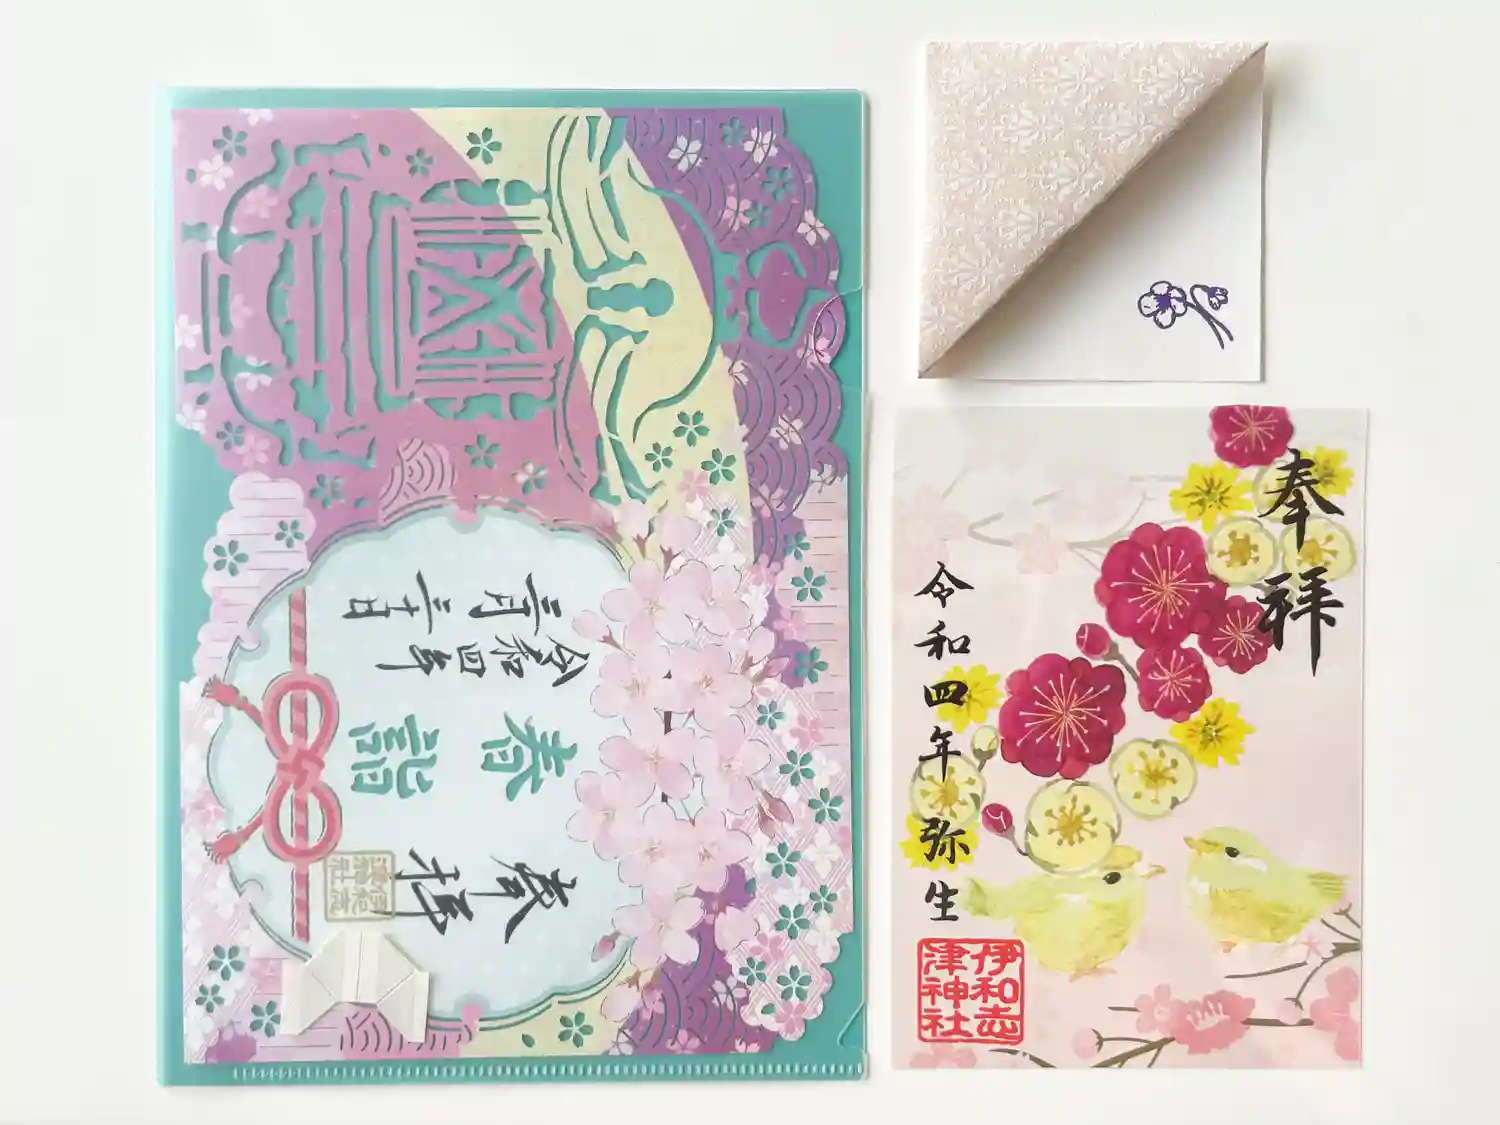 奉拝
春詣
令和四年
伊和志
津神社
奉拝
令和四年弥生
伊和志
津神社